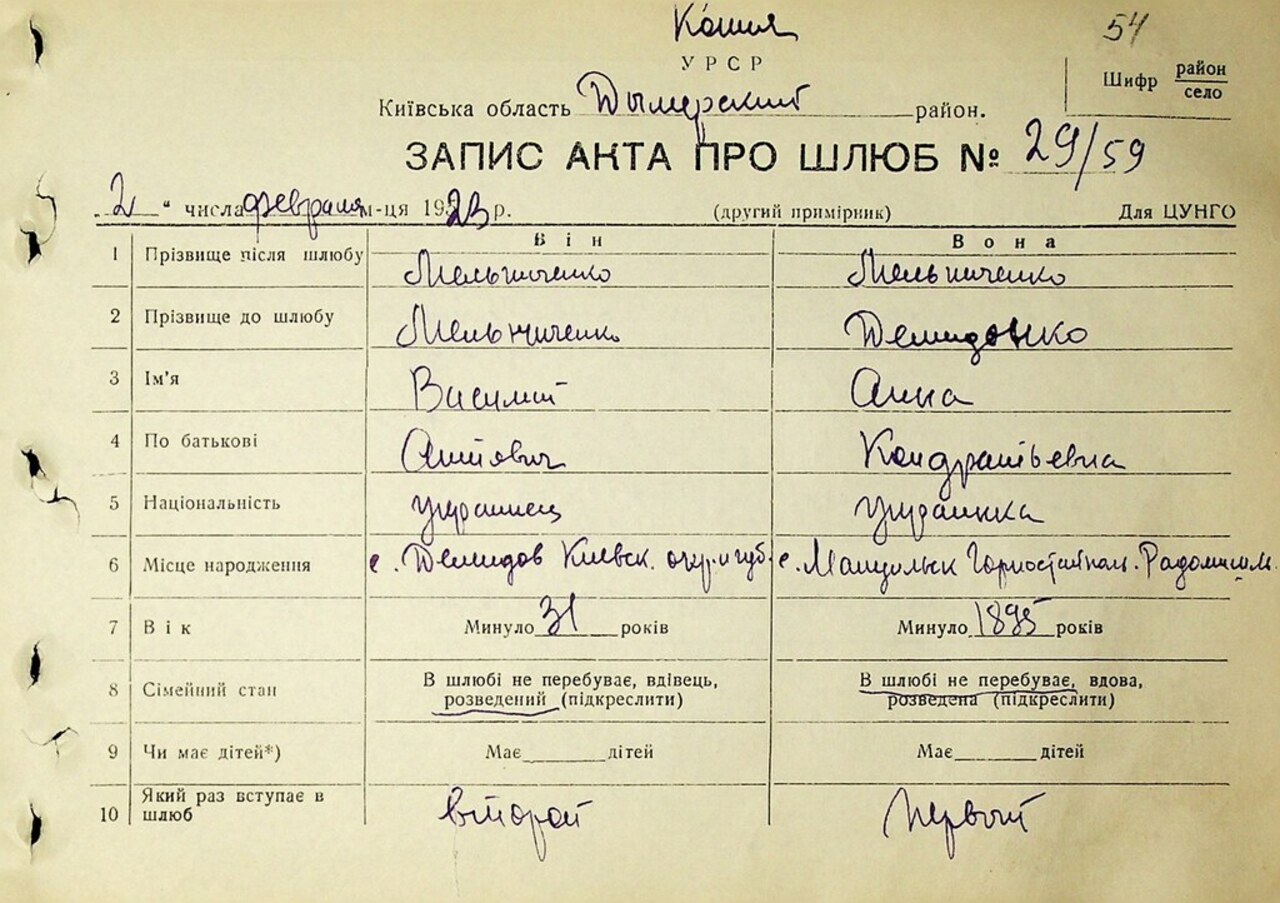 Копия
54
УРСР
Шифр район
село
Київська область Дымерский район.
ЗАПИС АКТА ПРО ШЛЮБ № 29/59
„2" числа февраля м-ця 1923 р. (другий примірник) Для ЦУНГО
Він Вона
1 Прізвище після шлюбу Мельниченко Мельниченко
2 Прізвище до шлюбу Мельниченко Демиденко
3 Ім'я Василий Анна
4 По батькові Кондратьевна
5 Національність украинец украинка
6 Місце народження с. Демидов Киевск. окр. губ. с. Горностайпол. Радомысл.
7 Вік Минуло 31 років Минуло 1895 років
8 Сімейний стан В шлюбі не перебуває, вдівець, В шлюбі не перебуває, вдова,
розведений (підкреслити) розведена (підкреслити)
9 Чи має дітей*) Має дітей Має дітей
10 Який раз вступає в шлюб второй первый